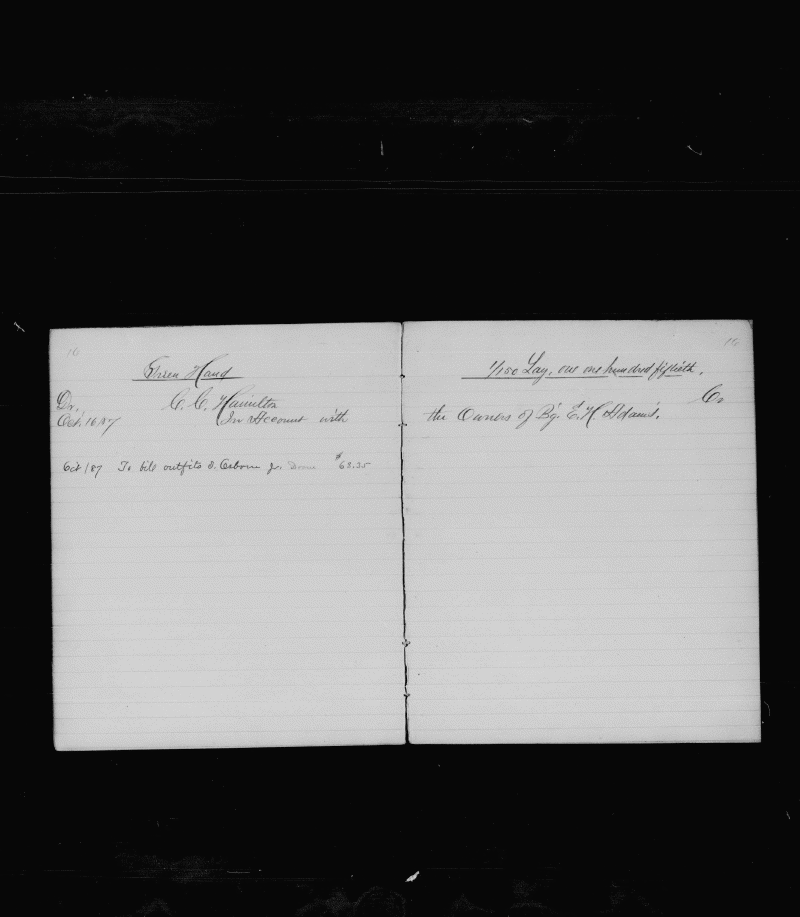 16
Green Hand
Dr.
C. C. Hamilton
Oct. 16/87
In Account with
Oct /87 To bill outfits J. Osborn Jr. $63.35
16
1/150 Lay, one one hundred fiftieth.
Cr
the Owners of Bg. E. H. Adams.